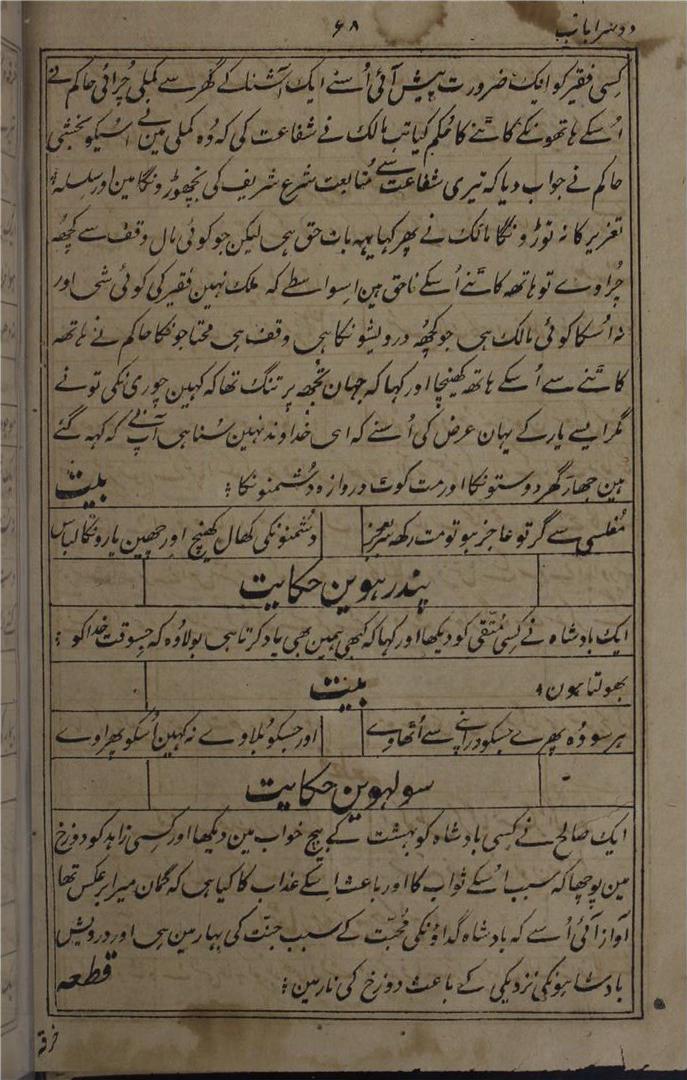 دوسرا باب
۶۸
کسی فقیر کو ایک ضرورت پیش آئی اُسنے ایک آشنا کے گھر سے کملی چُرائی حاکم نے
اُسکے ہاتھونکے کاٹنے کا حُکم کیا تب مالک نے شفاعت کی کہ وُہ کملی مین نے اسیکو بخشی
حاکم نے جواب دیا کہ تیری شفاعت سے مُتابعت شرع شریف کی نچھوڑونگا مین اور سلسلہ
تعزیر کا نہ توڑونگا مالک نے پھر کہا یہہ بات حق ہی لیکن جو کوئی مال وقف سے کچھہ
چُراوے تو ہاتھہ کاٹنے اُسکے ناحق ہین اسواسطے کہ ملک نہین فقیر کی کوئی شی اور
نہ اُسکا کوئی مالک ہی جو کچھہ درویشونکا ہی وقف ہی محتاجونکا حاکم نے ہاتھہ
کاٹنے سے اُسکے ہاتھہ کھینچا اور کہا کہ جہان تجھہ پر تنگ تھا کہ کہین چوری نکی تو نے
مگر ایسے یار کے یہان عرض کی اُسنے کہ ای خداوند نہین سُنا ہی آپ نے کہ کہہ گئے
ہین جھاڑ گھر دوستونکا اور مت کوٹ دروازہ دُشمنونکا ؛ بیت
مُفلسی سے گر تو عاجز ہو تو مت رکھہ
دشمنونکی کھال کھینچ اور چھین یارونکا لباس
پندرہوین حکایت
ایک بادشاہ نے کسی مُتّقی کو دیکھا اور کہا کہ کبھی ہمین بھی یاد کرتا ہی بولا وُہ کہ جسوقت خدا کو ؛
بھولتا ہون ؛ بیت
ہر سو وُہ پھرے جسکو در اپنے سے اُٹھاوے
اور جسکو بُلاوے نہ کہین اُسکو پھراوے
سولہوین حکایت
ایک صالح نے کسی بادشاہ کو بہشت کے بیچ خواب مین دیکھا اور کسی زاہد کو دوزخ
مین پوچھا کہ سبب اُسکے ثواب کا اور باعث اِسکے عذاب کا کیا ہی کہ گمان میرا برعکس تھا
آواز آئی اُسے کہ بادشاہ گداؤنکی مُحبّت کے سبب جنّت کی بہار مین ہی اور درویش
بادشاہونکی نزدیکی کے باعث دوزخ کی نار مین ؛ قطعہ
خرقہ